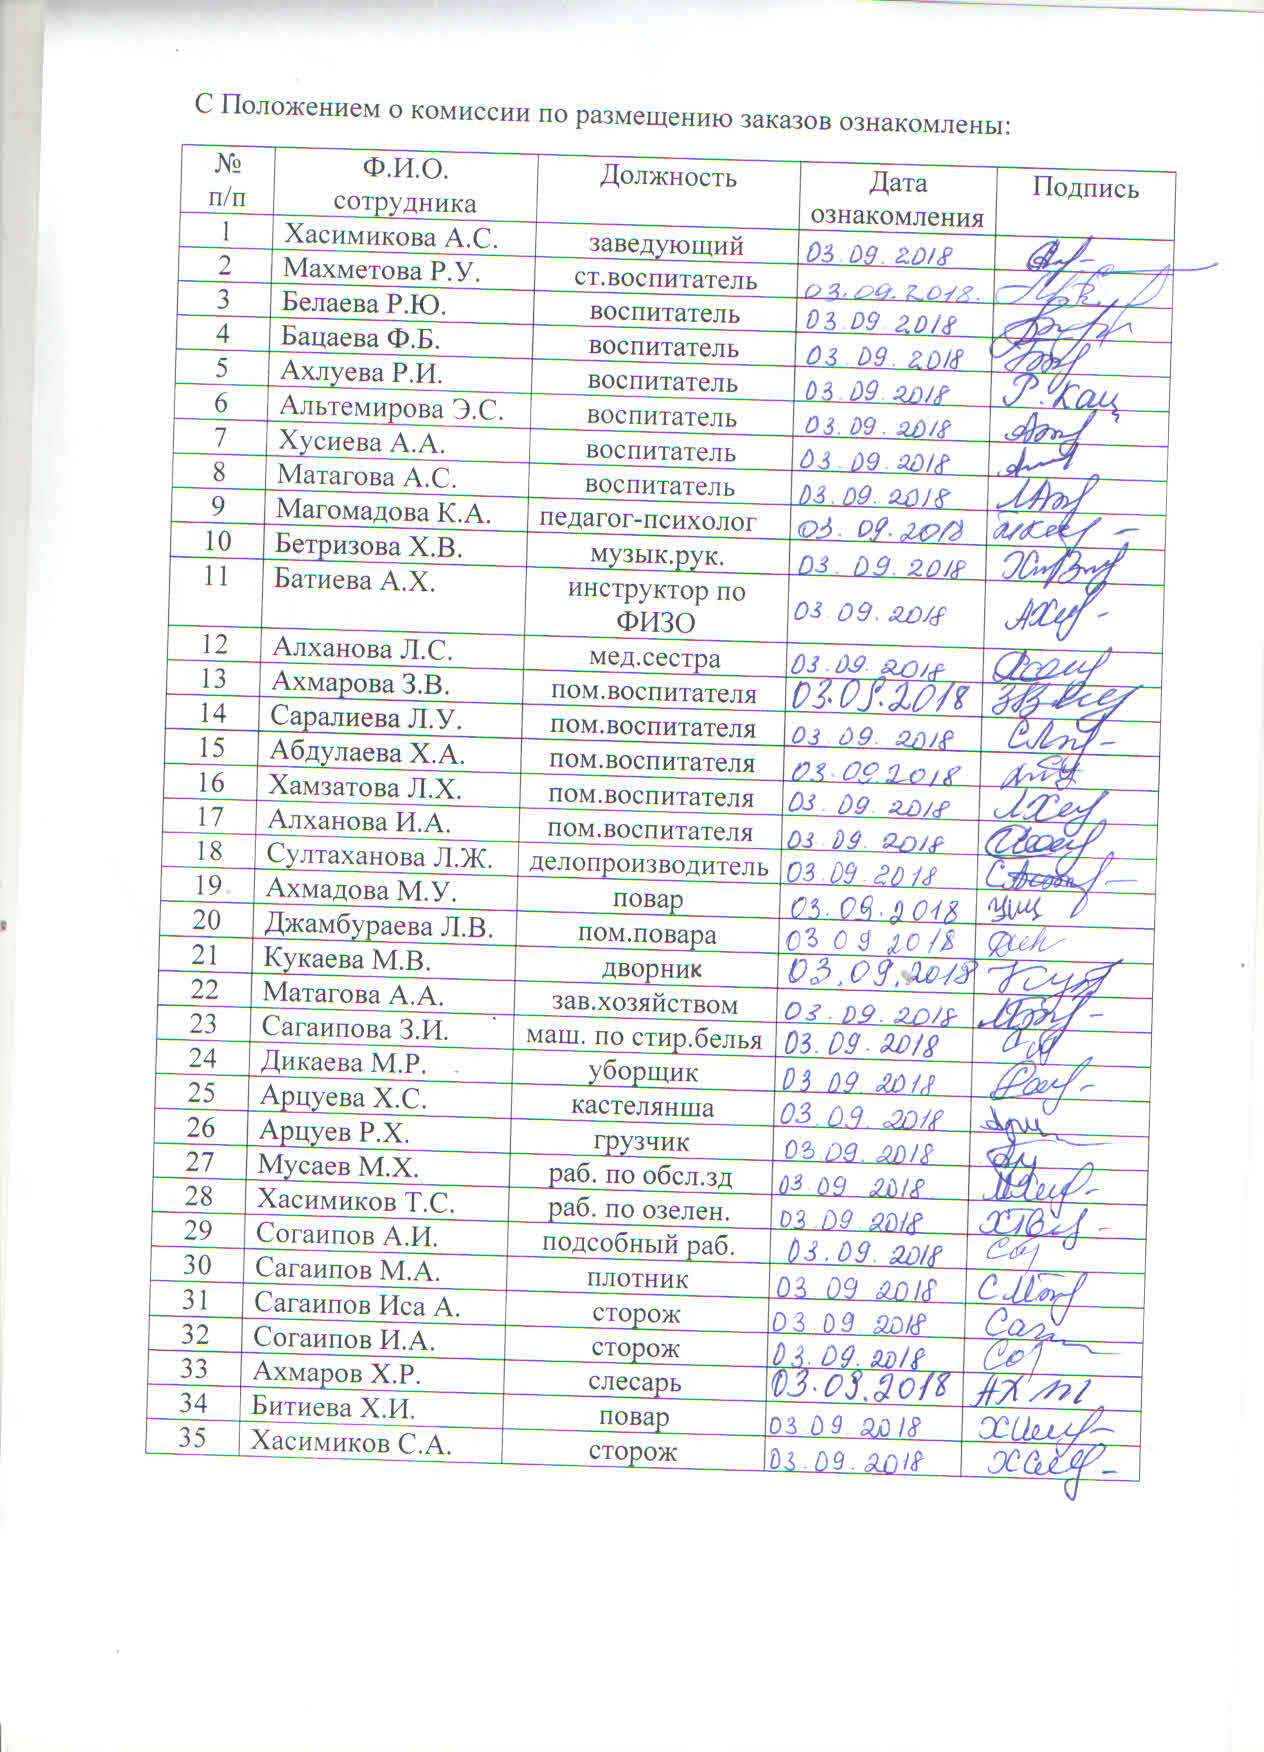 С Положением о комиссии по размещению заказов ознакомлены:
№ п/п Ф.И.О. сотрудника Должность Дата ознакомления Подпись
1 Хасимикова А.С. заведующий 03.09.2018
2 Махметова Р.У. ст.воспитатель 03.09.2018.
3 Белаева Р.Ю. воспитатель 03.09 2018
4 Бацаева Ф.Б. воспитатель 03.09.2018
5 Ахлуева Р.И. воспитатель 03.09.2018
6 Альтемирова Э.С. воспитатель 03.09.2018
7 Хусиева А.А. воспитатель 03.09.2018
8 Матагова А.С. воспитатель 03.09.2018
9 Магомадова К.А. педагог-психолог 03.09.2018
10 Бетризова Х.В. музык.рук. 03.09.2018
11 Батиева А.Х. инструктор по ФИЗО 03.09.2018
12 Алханова Л.С. мед.сестра 03.09.2018
13 Ахмарова З.В. пом.воспитателя 03.09.2018
14 Саралиева Л.У. пом.воспитателя 03.09.2018
15 Абдулаева Х.А. пом.воспитателя 03.09.2018
16 Хамзатова Л.Х. пом.воспитателя 03.09.2018
17 Алханова И.А. пом.воспитателя 03.09.2018
18 Султаханова Л.Ж. делопроизводитель 03.09.2018
19 Ахмадова М.У. повар 03.09.2018
20 Джамбураева Л.В. пом.повара 03 09 2018
21 Кукаева М.В. дворник 03.09.2018
22 Матагова А.А. зав.хозяйством 03.09.2018
23 Сагаипова З.И. маш. по стир.белья 03.09.2018
24 Дикаева М.Р. уборщик 03 09.2018
25 Арцуева Х.С. кастелянша 03.09.2018
26 Арцуев Р.Х. грузчик 03 09.2018
27 Мусаев М.Х. раб. по обсл.зд 03.09 2018
28 Хасимиков Т.С. раб. по озелен. 03.09.2018
29 Согаипов А.И. подсобный раб. 03.09.2018
30 Сагаипов М.А. плотник 03 09 2018
31 Сагаипов Иса А. сторож 03.09 2018
32 Согаипов И.А. сторож 03.09.2018
33 Ахмаров Х.Р. слесарь 03.09.2018
34 Битиева Х.И. повар 03 09 2018
35 Хасимиков С.А. сторож 03.09.2018